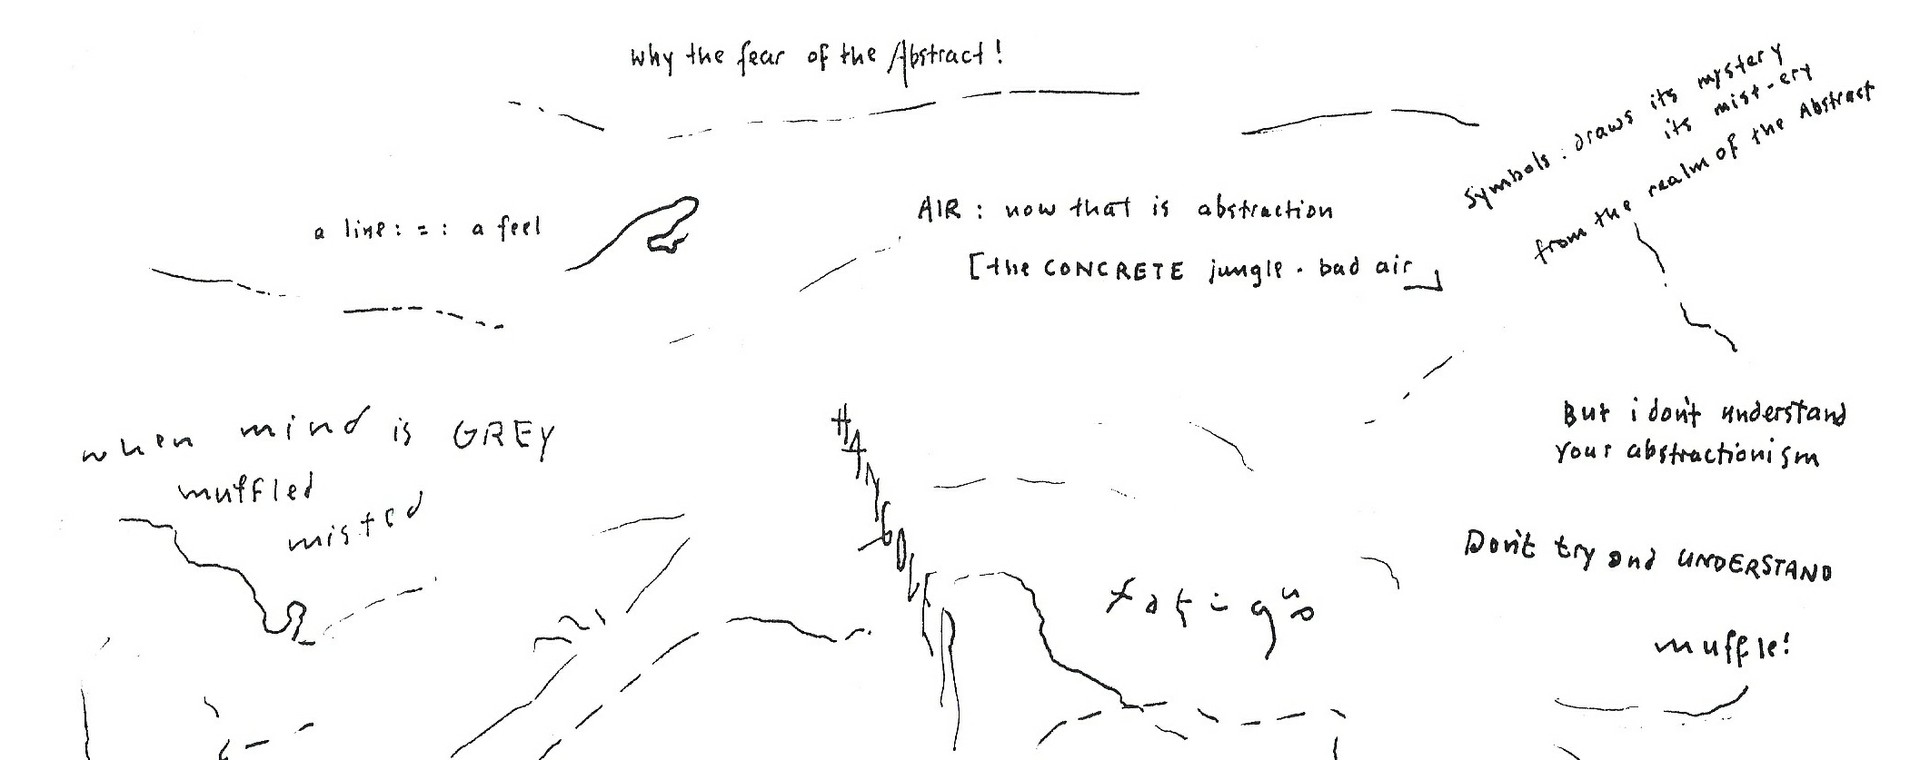 why the fear of the Abstract!
Symbols : draws its mystery
its mist-ery
from the realm of the Abstract
a line : = : a feel
AIR : now that is abstraction
[the CONCRETE jungle . bad air]
when mind is GREY
muffled
misted
But i don't understand
your abstractionism
Don't try and UNDERSTAND
muffle!